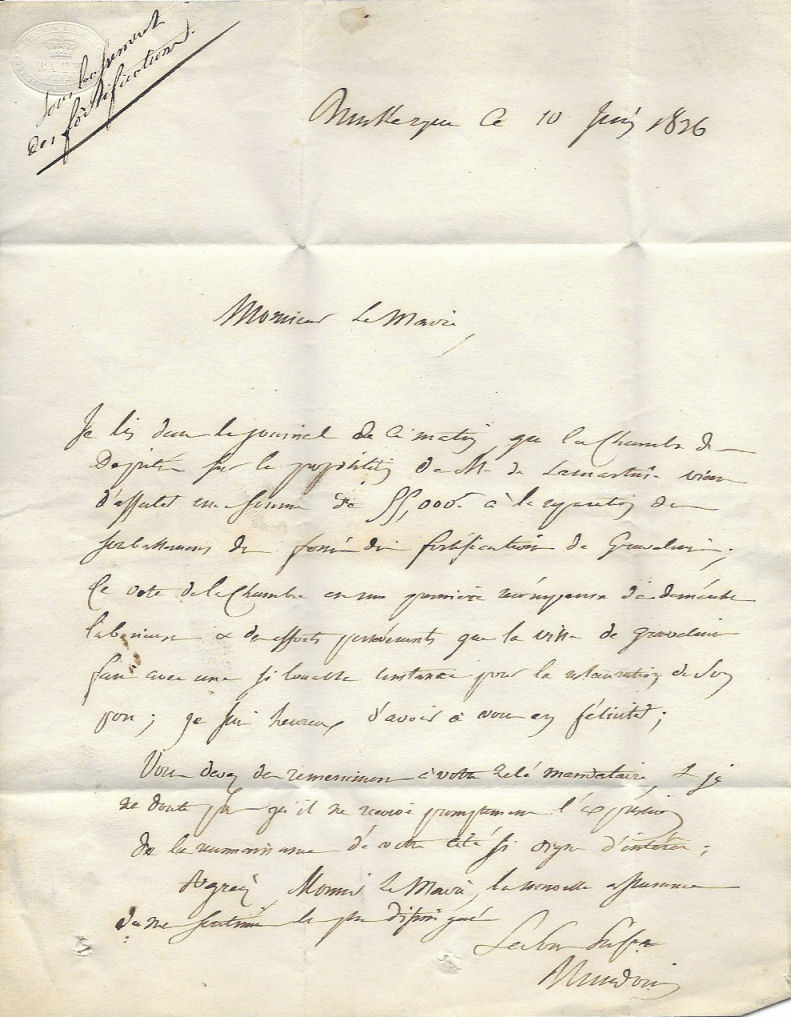 Soubassement
des fortifications.
BATH
Dunkerque Ce 10 Juin 1836
Monsieur Le Maire,
Je lis dans le journal de ce matin, que la Chambre des
Députés sur la proposition de Mr de Lamartine vient
d'affecter une somme de 55,000f. à la réparation des
soubassemens des fossés des fortifications de Gravelines;
Ce vote de la Chambre est une première récompense des démarches
laborieuses & des efforts persévérants que la ville de gravelines
fait avec une si louable constance pour la restauration de son
port; je suis heureux d'avoir à vous en féliciter;
Vous devez des remerciemens à votre zélé mandataire & je
ne doute pas qu'il ne reçoive promptement l'expression
de la reconnaissance de votre cité si digne d'intérêt;
Agréez, Monsieur le Maire, la nouvelle assurance
de mes sentimens les plus distingués
Le Sous Préfet